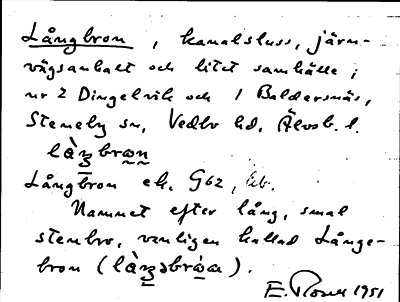 Långbron, kanalsluss, järn-
vägsanhalt och litet samhälle i
nr 2 Dingelvik och 1 Baldersnäs,
Steneby sn, Vedbo hd, Älvsb. l.
Långbron ek. G62,
Namnet efter lång, smal
stenbro, vanligen kallad Långe-
bron
E. 1951